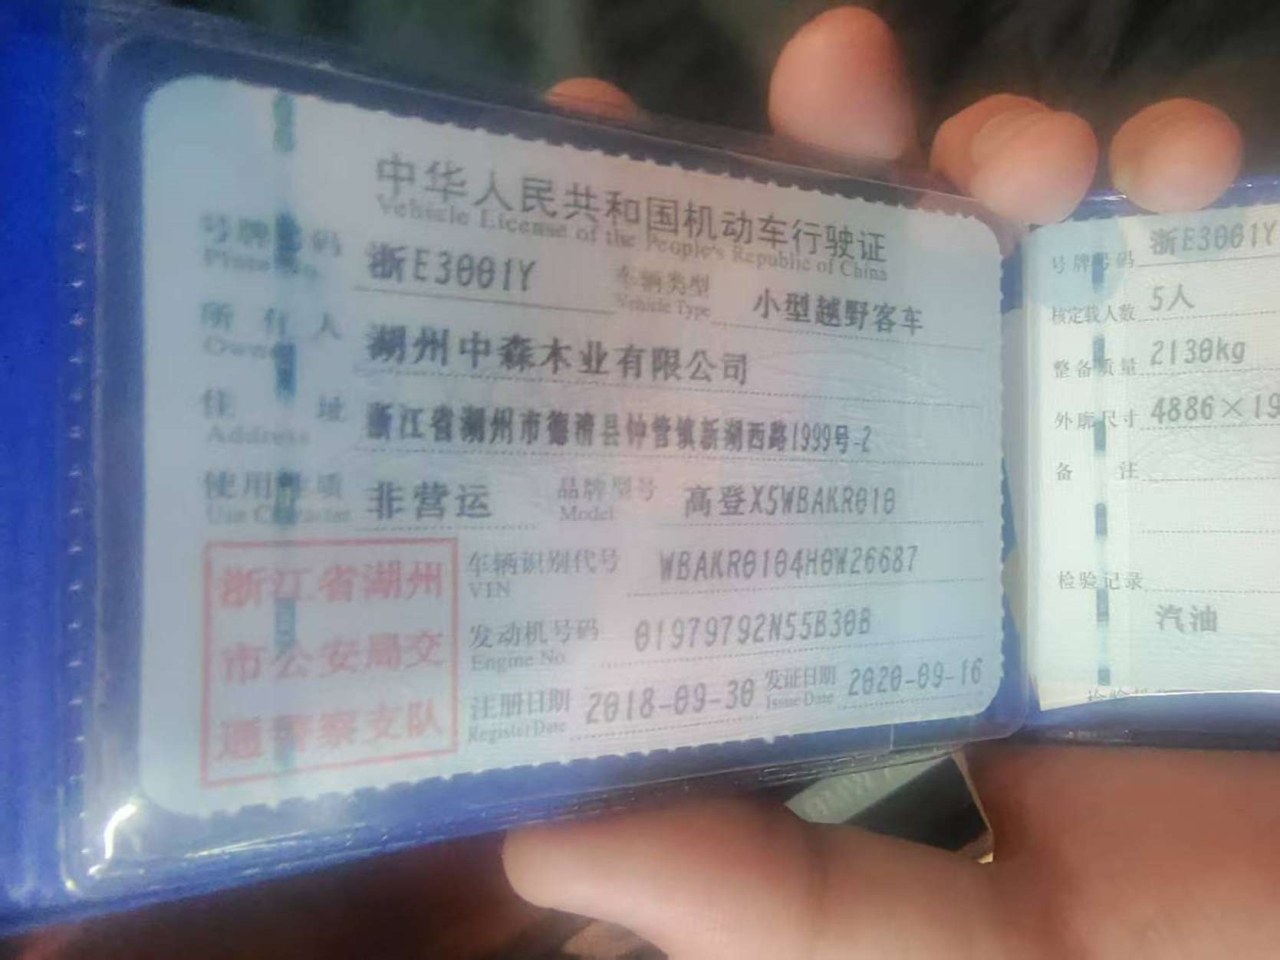 中华人民共和国机动车行驶证
Vehicle License of the People's Republic of China
号牌号码 浙E3001Y 车辆类型 小型越野客车
Plate No. Vehicle Type
所有人 湖州中森木业有限公司
Owner
住址 浙江省湖州市德清县钟管镇新湖西路1999号-2
Address
使用性质 非营运 品牌型号 高登X5WBAKR010
Use Character Model
浙江省湖州
市公安局交
通警察支队
车辆识别代号 WBAKR0104H0W26687
VIN
发动机号码 01979792N55B30B
Engine No.
注册日期 2018-09-30 发证日期 2020-09-16
Register Date Issue Date
号牌号码 浙E3001Y
核定载人数 5人
整备质量 2130kg
外廓尺寸 4886×19
备注
检验记录
汽油